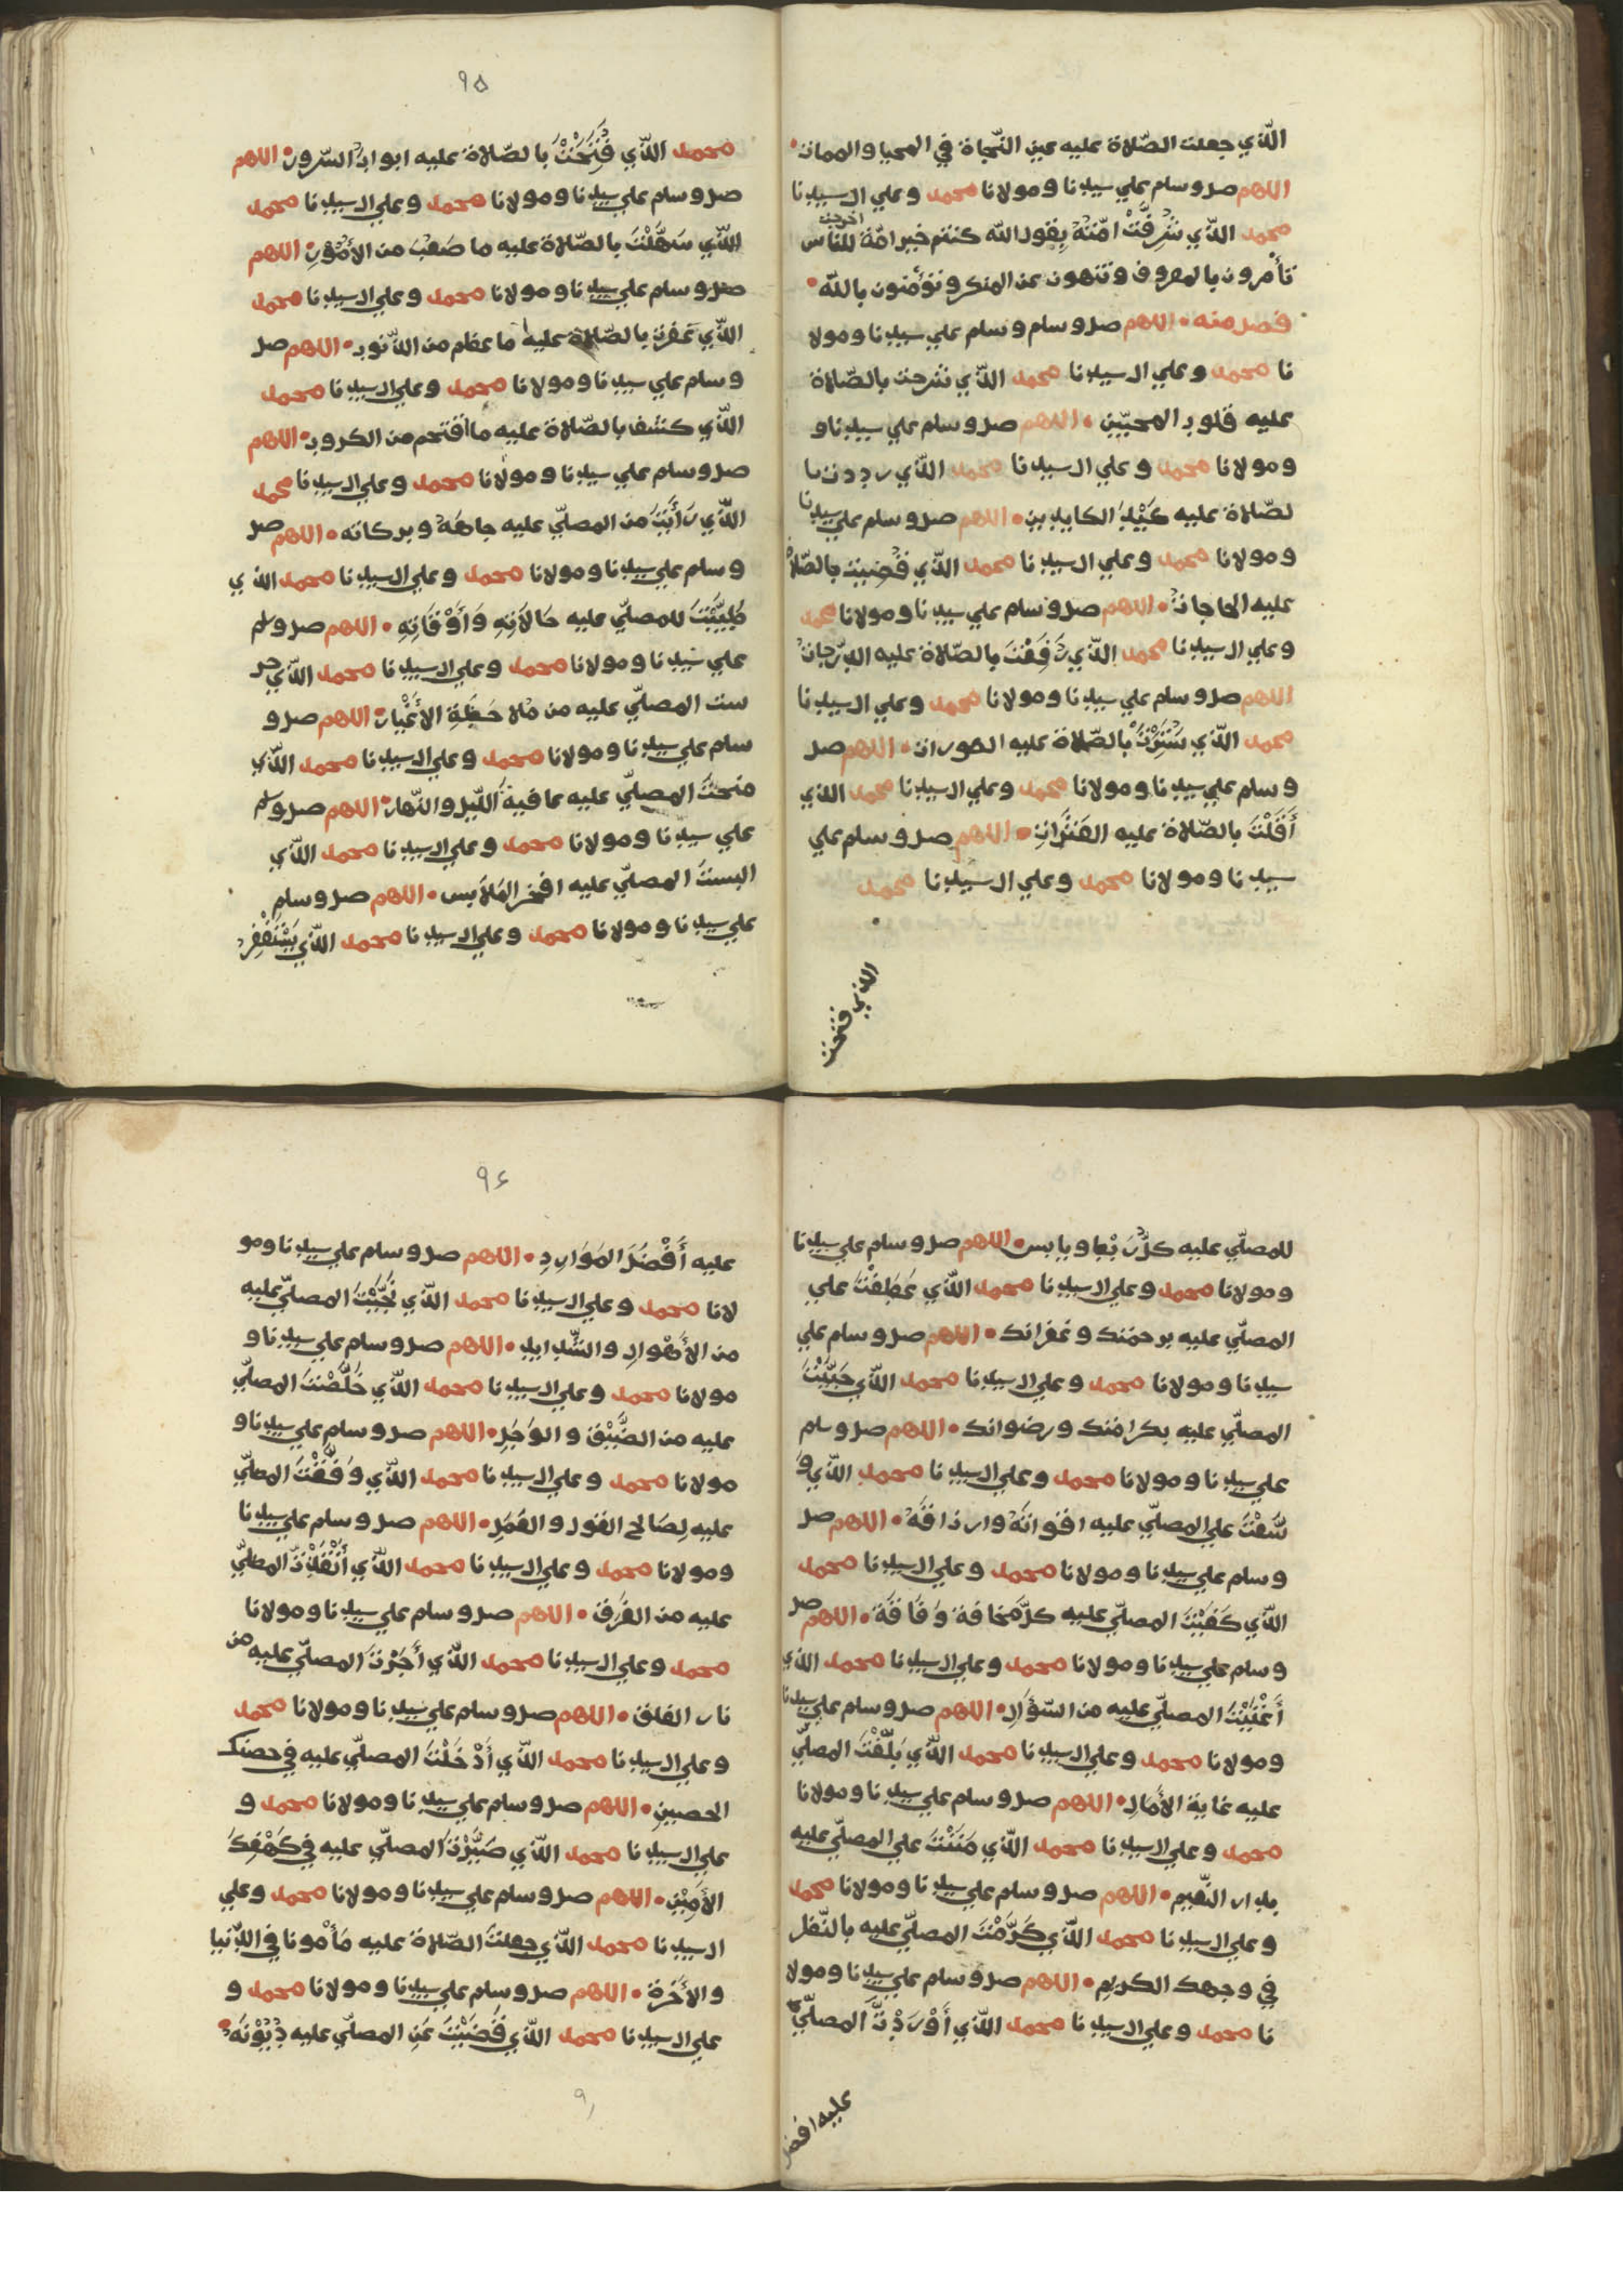 الّذي جعلت الصّلاة عليه عين النّجاة في المحيا والممات
اللهم صل وسلم علي سيدنا ومولانا محمد وعلي ال سيدنا
محمد الّذي شرفت امّته بقول الله كنتم خير امّة اخرجت للناس
تأمرون بالمعروف وتنهون عن المنكر وتؤمنون بالله
فصل منه اللهم صل وسلم وسلم علي سيدنا ومولا
نا محمد وعلي ال سيدنا محمد الّذي شرحت بالصّلاة
عليه قلوب المحبّين اللهم صل وسلم علي سيدنا و
ومولانا محمد وعلي ال سيدنا محمد الّذي رددت با
لصّلاة عليه كَيْدَ الكايدين اللهم صل وسلم علي سيدنا
ومولانا محمد وعلي ال سيدنا محمد الّذي قضيت بالصّلاة
عليه الحاجات اللهم صل وسلم علي سيدنا ومولانا محمد
وعلي ال سيدنا محمد الّذي رَفَعْتَ بالصّلاة عليه الدّرجات
اللهم صل وسلم علي سيدنا ومولانا محمد وعلي ال سيدنا
محمد الّذي سَتَرْتَ بالصّلاة عليه العورات اللهم صل
وسلم علي سيدنا ومولانا محمد وعلي ال سيدنا محمد الذي
أَقَلْتَ بالصّلاة عليه العَثَرَاتِ اللهم صل وسلم علي
سيدنا ومولانا محمد وعلي ال سيدنا محمد
الذي فتحت
٩٥
محمد الّذي فَتَحْتَ بالصّلاة عليه ابواب السّرور اللهم
صل وسلم علي سيدنا ومولانا محمد وعلي ال سيدنا محمد
الّذي سَهَّلْتَ بالصّلاة عليه ما صَعُبَ من الأمُوْرِ اللهم
صل وسلم علي سيدنا ومولانا محمد وعلي ال سيدنا محمد
الّذي غفرت بالصّلاة عليه ما عظم من الذّنوب اللهم صل
وسلم علي سيدنا ومولانا محمد وعلي ال سيدنا محمد
الّذي كشف بالصّلاة عليه ما اقتحم من الكروب اللهم
صل وسلم علي سيدنا ومولانا محمد وعلي ال سيدنا محمد
الّذي رَأَيْتَ من المصلّي عليه جاهَهُ وبركاته اللهم صل
وسلم علي سيدنا ومولانا محمد وعلي ال سيدنا محمد الذي
طَيَّبْتَ للمصلّي عليه حَالَاتِهِ وَأَوْقَاتِهِ اللهم صل وسلم
علي سيدنا ومولانا محمد وعلي ال سيدنا محمد الّذي حر
ست المصلّي عليه من مُلاحَظَةِ الأَغْيار اللهم صل و
سلم علي سيدنا ومولانا محمد وعلي ال سيدنا محمد الّذي
منحتَ المصلّي عليه عافية اللّيل والنّهار اللهم صل وسلم
علي سيدنا ومولانا محمد وعلي ال سيدنا محمد الّذي
البستَ المصلّي عليه افخر المَلَابس اللهم صل وسلم
علي سيدنا ومولانا محمد وعلي ال سيدنا محمد الّذي يَسْتَغْفِرُ
للمصلّي عليه كلُّ رَطْبٍ ويابس اللهم صل وسلم علي سيدنا
ومولانا محمد وعلي ال سيدنا محمد الّذي عَطَفْتَ علي
المصلّي عليه برحمتك وغفرانك اللهم صل وسلم علي
سيدنا ومولانا محمد وعلي ال سيدنا محمد الّذي حَبَّبْتَ
المصلّي عليه بكرامتك ورضوانك اللهم صل وسلم
علي سيدنا ومولانا محمد وعلي ال سيدنا محمد الّذي وَ
سَّعْتَ علي المصلّي عليه اقواتَهُ وارزاقَهُ اللهم صل
وسلم علي سيدنا ومولانا محمد وعلي ال سيدنا محمد
الّذي كَفَيْتَ المصلّي عليه كلّ مخافة وَفَاقَة اللهم صل
وسلم علي سيدنا ومولانا محمد وعلي ال سيدنا محمد الذي
أَغْنَيْتَ المصلّي عليه من السّؤَالِ اللهم صل وسلم علي سيدنا
ومولانا محمد وعلي ال سيدنا محمد الّذي بَلَّغْتَ المصلّي
عليه غاية الأَمَالِ اللهم صل وسلم علي سيدنا ومولانا
محمد وعلي ال سيدنا محمد الّذي مَنَنْتَ علي المصلّي عليه
بدار النّعيم اللهم صل وسلم علي سيدنا ومولانا محمد
وعلي ال سيدنا محمد الّذي كَرَّمْتَ المصلّي عليه بالنّظر
في وجهك الكريم اللهم صل وسلم علي سيدنا ومولا
نا محمد وعلي ال سيدنا محمد الّذي أَوْرَدْتَّ المصلّي
عليه افضل
٩٦
عليه أَفْضَلَ المَوَارِدِ اللهم صل وسلم علي سيدنا ومو
لانا محمد وعلي ال سيدنا محمد الّذي نَجَّيْتَ المصلّي عليه
من الأَهْوالِ والشّدايد اللهم صل وسلم علي سيدنا و
مولانا محمد وعلي ال سيدنا محمد الّذي خَلَّصْتَ المصلّي
عليه من الضَّيْقِ والوَجَلِ اللهم صل وسلم علي سيدنا و
مولانا محمد وعلي ال سيدنا محمد الّذي وَفَّقْتَ المصلّي
عليه لِصَالح القول والعَمَلِ اللهم صل وسلم علي سيدنا
ومولانا محمد وعلي ال سيدنا محمد الّذي أَنْقَذْتَ المصلّي
عليه من الغَرَق اللهم صل وسلم علي سيدنا ومولانا
محمد وعلي ال سيدنا محمد الّذي أَجَرْتَ المصلّي عليه من
نار الفلق اللهم صل وسلم علي سيدنا ومولانا محمد
وعلي ال سيدنا محمد الّذي أَدْخَلْتَ المصلّي عليه في حصنك
الحصين اللهم صل وسلم علي سيدنا ومولانا محمد و
علي ال سيدنا محمد الّذي صَيَّرْتَ المصلّي عليه في كَهْفِكَ
الأَمِيْنِ اللهم صل وسلم علي سيدنا ومولانا محمد وعلي
ال سيدنا محمد الّذي جعلتَ الصّلاة عليه مَأْمونا في الدّنيا
والأَخرة اللهم صل وسلم علي سيدنا ومولانا محمد و
علي ال سيدنا محمد الّذي قَضَيْتَ عَنِ المصلّي عليه دُيُوْنَهُ